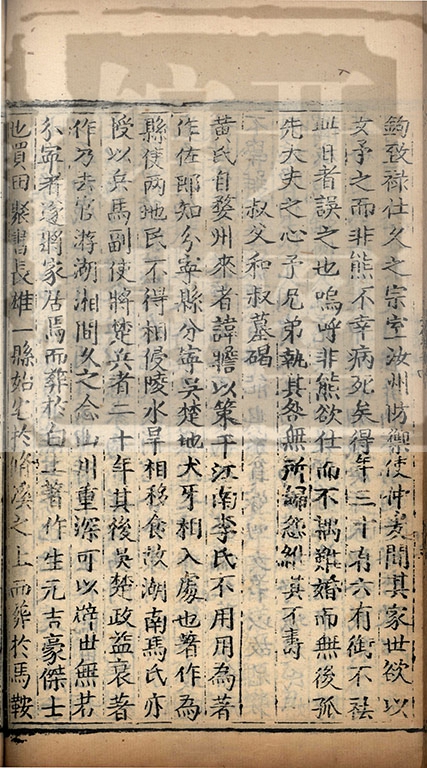 鉤致祿仕久之宗室汝州防禦使仲爰聞其家世欲以
女予之而非熊不幸病死矣得年三十有六有衛不祛
其者誤之也嗚呼非熊欲仕而不遇難婚而無後孤
先大夫之心予兄弟執其咎無所歸怨維其不壽
叔父和叔墓碣
黄氏自婺州來者諱瞻以策干江南李氏不用用為著
作佐郎知分寧縣分寧吳楚地犬牙相入處也著作為
縣使兩地民不得相侵陵水旱相移食故湖南馬氏亦
授以兵馬副使將楚兵者二十年其後吳楚政益衰著
作乃去官游湖湘間久之念山川重深可以辟世無若
分寧者遂將家居焉而葬於白土著作生元吉豪傑士
也買田聚書長雄一縣始宅於脩溪之上而葬於馬鞍